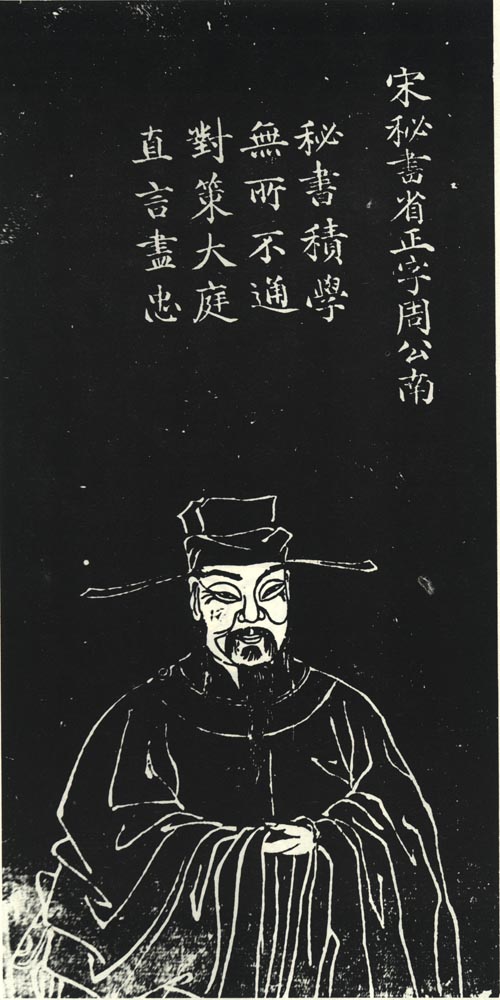 宋秘書省正字周公南
秘書積學
無所不通
對策大庭
直言盡忠